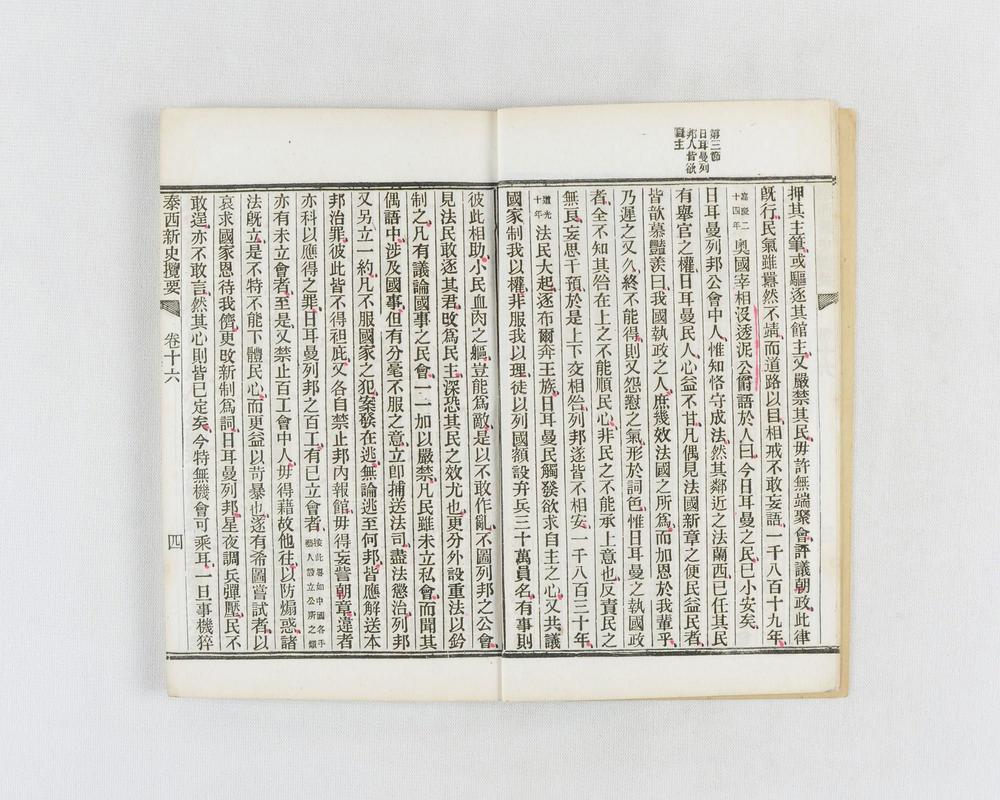 第三節
日耳曼列
邦人皆欲
自主
押其主筆或驅逐其館主又嚴禁其民毋許無端聚會評議朝政此律
旣行民氣雖囂然不靖而道路以目相戒不敢妄語一千八百十九年
嘉慶二十四年奧國宰相沒透泥公爵語於人曰今日耳曼之民已小安矣
日耳曼列邦公會中人惟知恪守成法然其鄰近之法蘭西已任其民
有舉官之權日耳曼民人心益不甘凡偶見法國新章之便民益民者
皆歆慕豔羡曰我國執政之人庶幾效法國之所為而加恩於我輩乎
乃遲之又久終不能得則又怨懟之氣形於詞色惟日耳曼之執國政
者全不知其咎在上之不能順民心非民之不能承上意也反責民之
無良妄思干預於是上下交相咎列邦遂皆不相安一千八百三十年
道光十年法民大起逐布爾奔王族日耳曼民觸發欲求自主之心又共議
國家制我以權非服我以理徒以列國額設弁兵三十萬員名有事則
彼此相助小民血肉之軀豈能為敵是以不敢作亂不圖列邦之公會
見法民敢逐其君改為民主深恐其民之效尤也更分外設重法以鈐
制之凡有議論國事之民會一一加以嚴禁凡民雖未立私會而聞其
偶語中涉及國事但有分毫不服之意立卽捕送法司盡法懲治列邦
又另立一約凡不服國家之犯案發在逃無論逃至何邦皆應解送本
邦治罪彼此皆不得袒庇又各自禁止邦內報館毋得妄訾朝章違者
亦科以應得之罪日耳曼列邦之百工有已立會者按此畧如中國各手藝人設立公所之類
亦有未立會者至是又禁止百工會中人毋得藉故他往以防煽惑諸
法旣立是不特不能下體民心而更益以苛暴也遂有希圖嘗試者以
哀求國家恩待我儕更改新制為詞日耳曼列邦星夜調兵彈壓民不
敢逞亦不敢言然其心則皆已定矣今特無機會可乘耳一旦事機猝
泰西新史攬要 卷十六 四